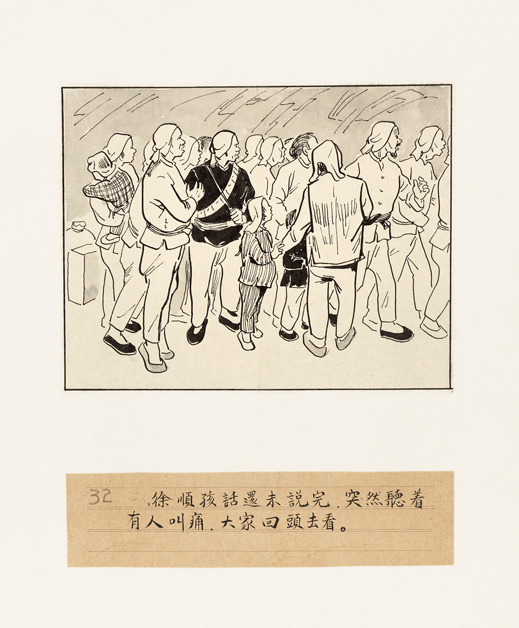 32 徐順孩話還未説完,突然聽着
有人叫痛,大家回頭去看。